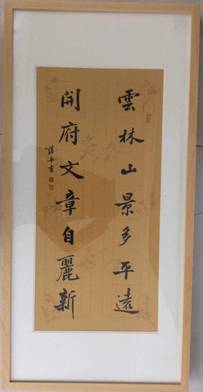 雲林山景多平遠
開府文章自麗新